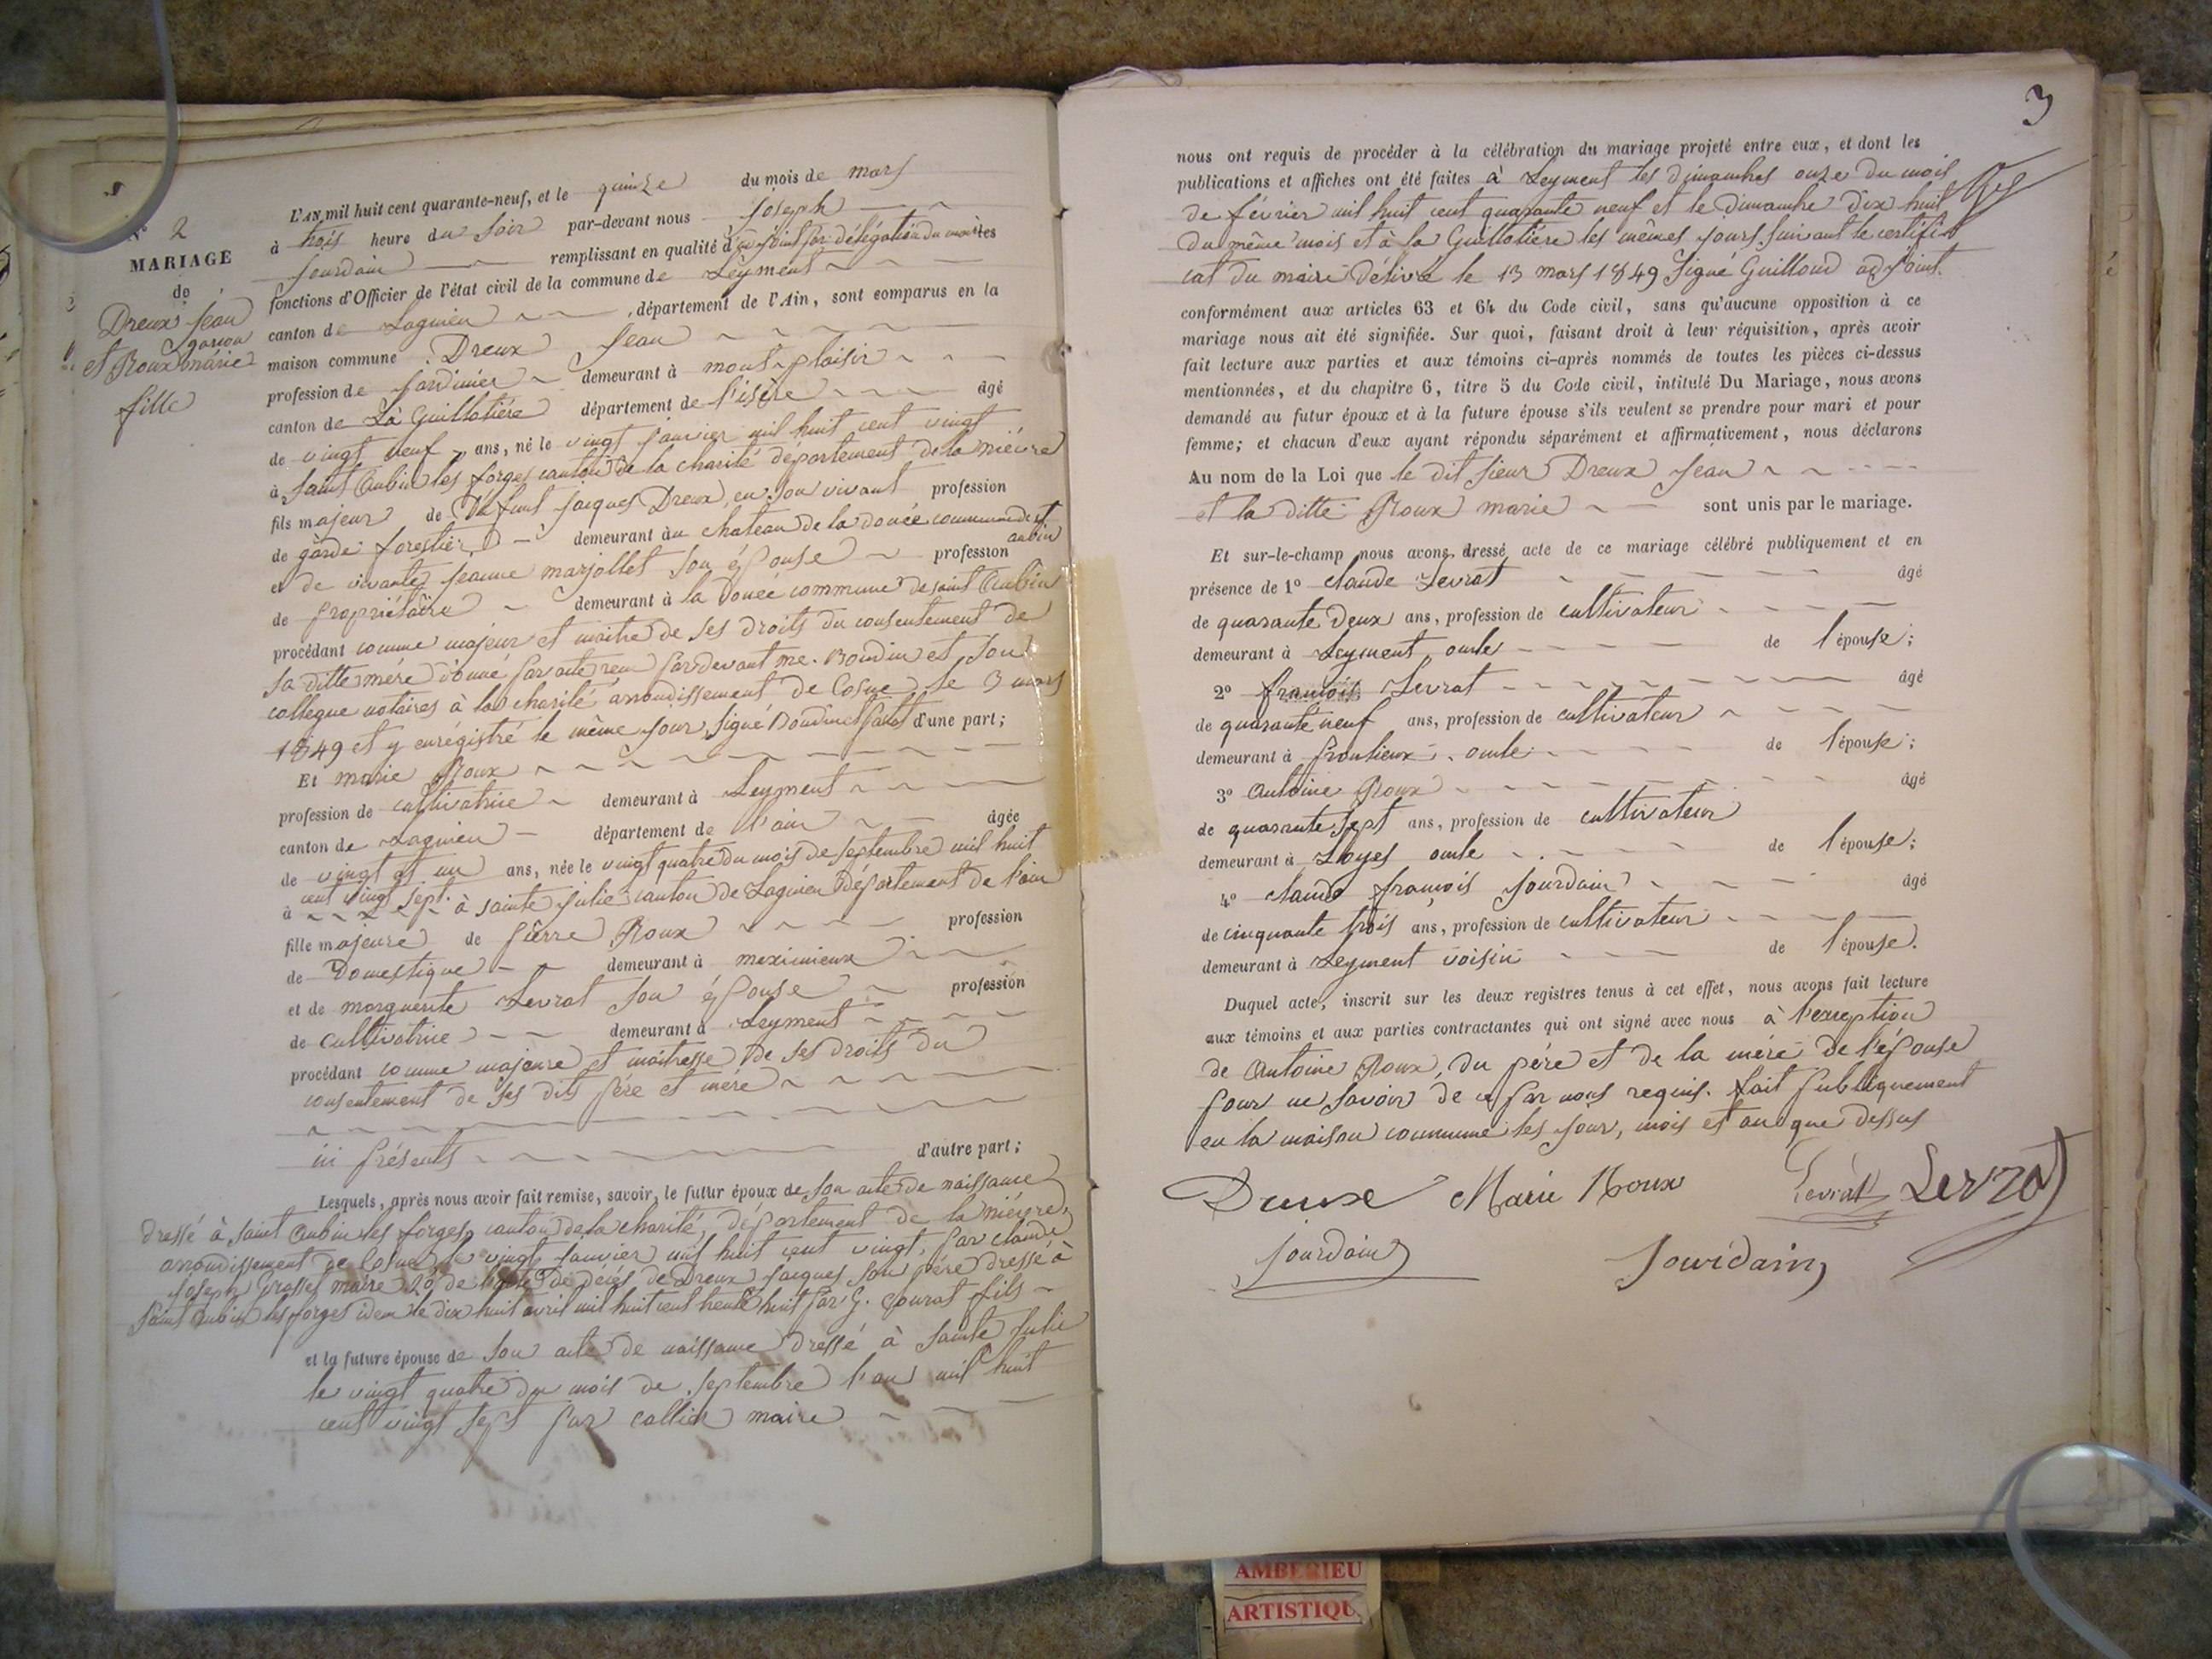 N° 2
MARIAGE
de
Dreux Jean
garcon
et Roux marie
fille
L'AN mil huit cent quarante-neuf, et le quinze du mois de mars
à trois heure du soir par-devant nous Joseph
Jourdain remplissant en qualité d'adjoint par délégation du maire les
fonctions d'Officier de l'état civil de la commune de Leyment
canton de Lagnieu, département de l'Ain, sont comparus en la
maison commune. Dreux Jean
profession de jardinier demeurant à mont-plaisir
canton de La Guillotière département de l'isère âgé
de vingt neuf ans, né le vingt janvier mil huit cent vingt
à Saint Aubin les forges canton de la charité département de la nièvre
fils majeur de défunt Jacques Dreux, en son vivant profession
de garde forestier demeurant au chateau de la douée commune de st
aubin
et de vivante jeanne marjollet son épouse profession
de propriétaire demeurant à la Douée commune de saint Aubin
procédant comme majeur et maitre de ses droits du consentement de
sa ditte mère donné par acte reçu pardevant me. Boudin et son
collegue notaires à la charité arrondissement de Cosne le 3 mars
1849 et y enrégistré le même jour, signé Boudin et d'une part;
Et marie Roux
profession de cultivatrice demeurant à Leyment
canton de Lagnieu département de l'ain âgée
de vingt et un ans, née le vingt quatre du mois de septembre mil huit
cent vingt sept.
à à sainte julie canton de Lagnieu Département de l'ain
fille majeure de pierre Roux profession
de Domestique demeurant à meximieux
et de marguerite Levrat son épouse profession
de cultivatrice demeurant à Leyment
procédant comme majeure et maitresse de ses droits du
consentement de ses dits père et mère
ici présents d'autre part;
Lesquels, après nous avoir fait remise, savoir, le futur époux de son acte de naissance
dressé à saint Aubin les forges, canton de la charité, département de la nièvre,
arrondissement de Cosne le vingt janvier mil huit cent vingt, par claude
joseph maire 2° de l'acte de décés de Dreux jacques son père dressé à
saint aubin les forges idem le dix huit avril mil huit cent trente huit par G. fils
et la future épouse de son acte de naissance dressé à Sainte julie
le vingt quatre du mois de septembre l'an mil huit
cent vingt sept par maire
3
nous ont requis de procéder à la célébration du mariage projeté entre eux, et dont les
publications et affiches ont été faites à Leyment les dimanches onze du mois
de février mil huit cent quarante neuf et le Dimanche dix huit
du même mois et à la Guillotière les mêmes jours suivant le certifi
cat du maire délivré le 13 mars 1849 signé Guilloud adjoint.
conformément aux articles 63 et 64 du Code civil, sans qu'aucune opposition à ce
mariage nous ait été signifiée. Sur quoi, faisant droit à leur réquisition, après avoir
fait lecture aux parties et aux témoins ci-après nommés de toutes les pièces ci-dessus
mentionnées, et du chapitre 6, titre 5 du Code civil, intitulé Du Mariage, nous avons
demandé au futur époux et à la future épouse s'ils veulent se prendre pour mari et pour
femme; et chacun d'eux ayant répondu séparément et affirmativement, nous déclarons
Au nom de la Loi que le dit sieur Dreux jean
et la ditte Roux marie sont unis par le mariage.
Et sur-le-champ nous avons dressé acte de ce mariage célébré publiquement et en
présence de 1° claude Levrat âgé
de quarante deux ans, profession de cultivateur
demeurant à Leyment oncle de l'épouse;
2° françois Levrat âgé
de quarante neuf ans, profession de cultivateur
demeurant à oncle de l'épouse;
3° Antoine Roux âgé
de quarante sept ans, profession de cultivateur
demeurant à Loyes oncle de l'épouse;
4° claude françois jourdain âgé
de cinquante trois ans, profession de cultivateur
demeurant à Leyment voisin de l'épouse.
Duquel acte, inscrit sur les deux registres tenus à cet effet, nous avons fait lecture
aux témoins et aux parties contractantes qui ont signé avec nous à l'exception
de Antoine Roux, du père et de la mère de l'épouse
pour ne savoir de ce par nous requis. fait publiquement
en la maison commune les jour, mois et an que dessus
Dreux Marie Roux Levrat Levrat
Jourdain Jourdain
AMBERIEU
ARTISTIQU